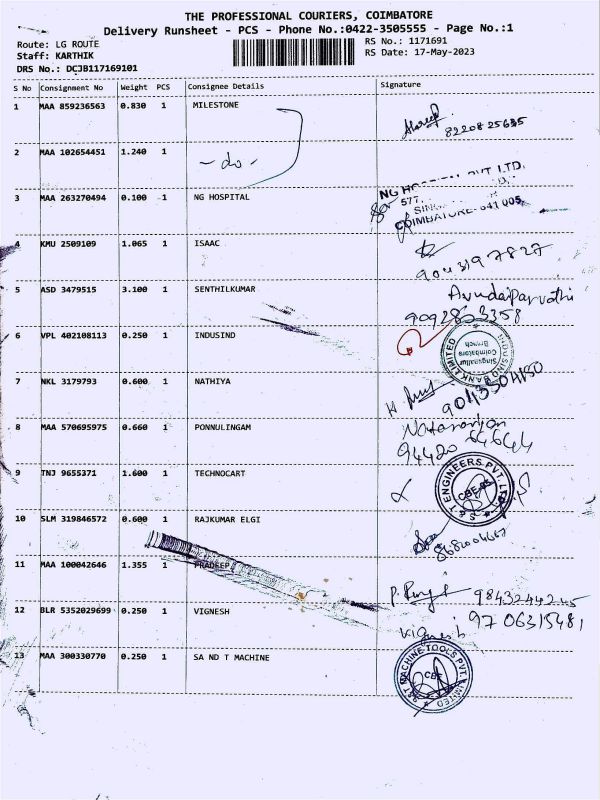 THE PROFESSIONAL COURIERS, COIMBATORE
Delivery Runsheet - PCS - Phone No.:0422-3505555 - Page No.:1
Route: LG ROUTE RS No.: 1171691
Staff: KARTHIK RS Date: 17-May-2023
DRS No.: DCJB117169101
S No Consignment No Weight PCS Consignee Details Signature
1 MAA 859236563 0.830 1 MILESTONE
8220825635
2 MAA 102654451 1.240 1 - do -
NG HOSPITAL PVT LTD.
577,
3 MAA 263270494 0.100 1 NG HOSPITAL
COIMBATORE-641 005.
4 KMU 2509109 1.065 1 ISAAC
9043197827
5 ASD 3479515 3.100 1 SENTHILKUMAR
Avudaiparvathi
9092833358
6 VPL 402108113 0.250 1 INDUSIND
INDUSIND BANK LIMITED
Singanallur
Coimbatore
Branch
7 NKL 3179793 0.600 1 NATHIYA
9043504180
8 MAA 570695975 0.660 1 PONNULINGAM
Natarajan
94420 64644
9 TNJ 9655371 1.600 1 TECHNOCART
S&ST ENGINEERS PVT. LTD.
CBE-05
10 SLM 319846572 0.600 1 RAJKUMAR ELGI
8682004667
11 MAA 100042646 1.355 1 PRADEEP
9843224245
12 BLR 5352029699 0.250 1 VIGNESH
Vignesh
9706315481
13 MAA 300330770 0.250 1 SA ND T MACHINE
S&T MACHINE TOOLS PVT. LIMITED
CBE